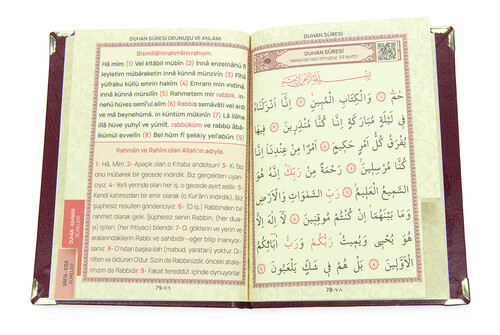 DUHAN SÛRESİ OKUNUŞU VE ANLAMI
Bismillâhirrahmânirrahıym.
Hâ mîm (1) Vel kitâbil mübîn (2) İnnâ enzelnâhü fî
leyletim mübâraketin innâ künnâ münzirîn (3) Fîhâ
yüfraku küllü emrin hakîm (4) Emram min ındinâ.
innâ künnâ mürsilîn (5) Rahmetem mir rabbik. in-
nehû hüves semî'ul alîm (6) Rabbis semâvâti vel ardı
ve mâ beynehümâ. in küntüm mûkınîn (7) Lâ ilâhe
illâ hüve yuhyî ve yümît. rabbüküm ve rabbü âbâ-
ikümül evvelîn (8) Bel hüm fî şekkiy yel'abûn (9)
Rahman ve Rahîm olan Allah'ın adıyla.
1- Hâ, Mîm. 2- Apaçık olan o Kitaba andolsun! 3- Ki Biz
onu mübarek bir gecede indirdik. Biz gerçekten uyarı-
cıyız. 4- Yerli yerinde olan her iş, o gecede ayırt edilir. 5-
Kendi katımızdan bir emir olarak (o Kur'ânı indirdik). Biz
şüphesiz resulleri göndericiyiz. 6- (O iş,) Rabbinden bir
rahmet olarak gelir. Şüphesiz senin Rabbin, (her dua-
yı) işiten, (her ihtiyacı) bilendir. 7- O, göklerin ve yerin ve
aralarındakilerin Rabbi ve sahibidir-eğer bilip inanıyor-
sanız. 8- O'ndan başka ilah (mabud, yaratan) yoktur. Di-
rilten ve öldüren Odur. Sizin de Rabbinizdir, önceki atala-
rınızın da Rabbidir. 9- Fakat tereddüt içinde oynuyorlar.
79-٧٩
DUHAN SÛRESİ
DUHAN SÛRESİ
Mekke'de nazil olmuştur. 59 ayettir.
حٰمٓ ﴿١﴾ وَالْكِتَابِ الْمُبٖينِ ﴿٢﴾ اِنَّٓا اَنْزَلْنَاهُ
فٖي لَيْلَةٍ مُبَارَكَةٍ اِنَّا كُنَّا مُنْذِرٖينَ ﴿٣﴾ فٖيهَا
يُفْرَقُ كُلُّ اَمْرٍ حَكٖيمٍ ﴿٤﴾ اَمْرًا مِنْ عِنْدِنَا اِنَّا
كُنَّا مُرْسِلٖينَ ﴿٥﴾ رَحْمَةً مِنْ رَبِّكَ اِنَّهُ هُوَ
السَّمٖيعُ الْعَلٖيمُ ﴿٦﴾ رَبِّ السَّمٰوَاتِ وَالْاَرْضِ
وَمَا بَيْنَهُمَا اِنْ كُنْتُمْ مُوقِنٖينَ ﴿٧﴾ لَٓا اِلٰهَ اِلَّا
هُوَ يُحْيٖي وَيُمٖيتُ رَبُّكُمْ وَرَبُّ اٰبَٓائِكُمُ
الْاَوَّلٖينَ ﴿٨﴾ بَلْ هُمْ فٖي شَكٍّ يَلْعَبُونَ ﴿٩﴾
78-٧٨